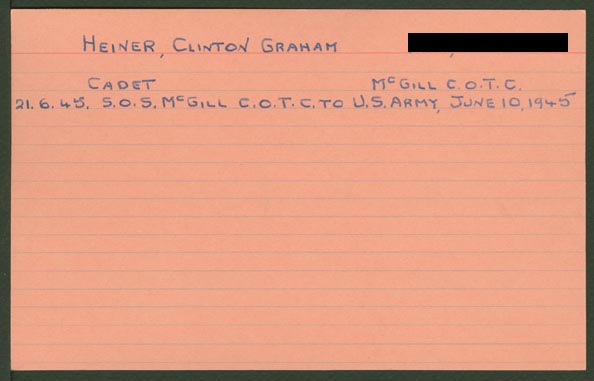 HEINER, CLINTON GRAHAM
CADET McGILL C.O.T.C.
21.6.45. S.O.S. McGILL C.O.T.C. TO U.S. ARMY, JUNE 10, 1945